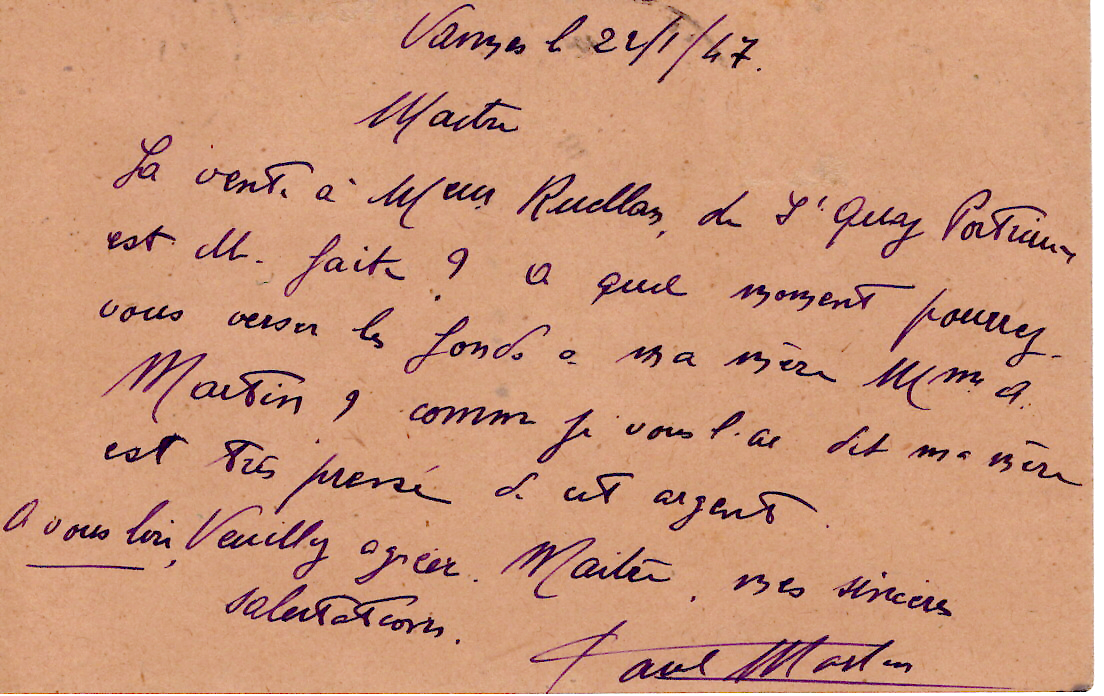 Vannes le 22/1/47.
Maitre
La vente à Meur Ruellan, de St Quay Portrieux
est elle faite ? a quel moment pourrez-
vous verser les fonds a ma mère Mme A.
Martin ? comme je vous l'ai dit ma mère
est très pressée de cet argent.
A vous lire, Veuillez agréer. Maitre, mes sincères
salutations.
Paul Martin